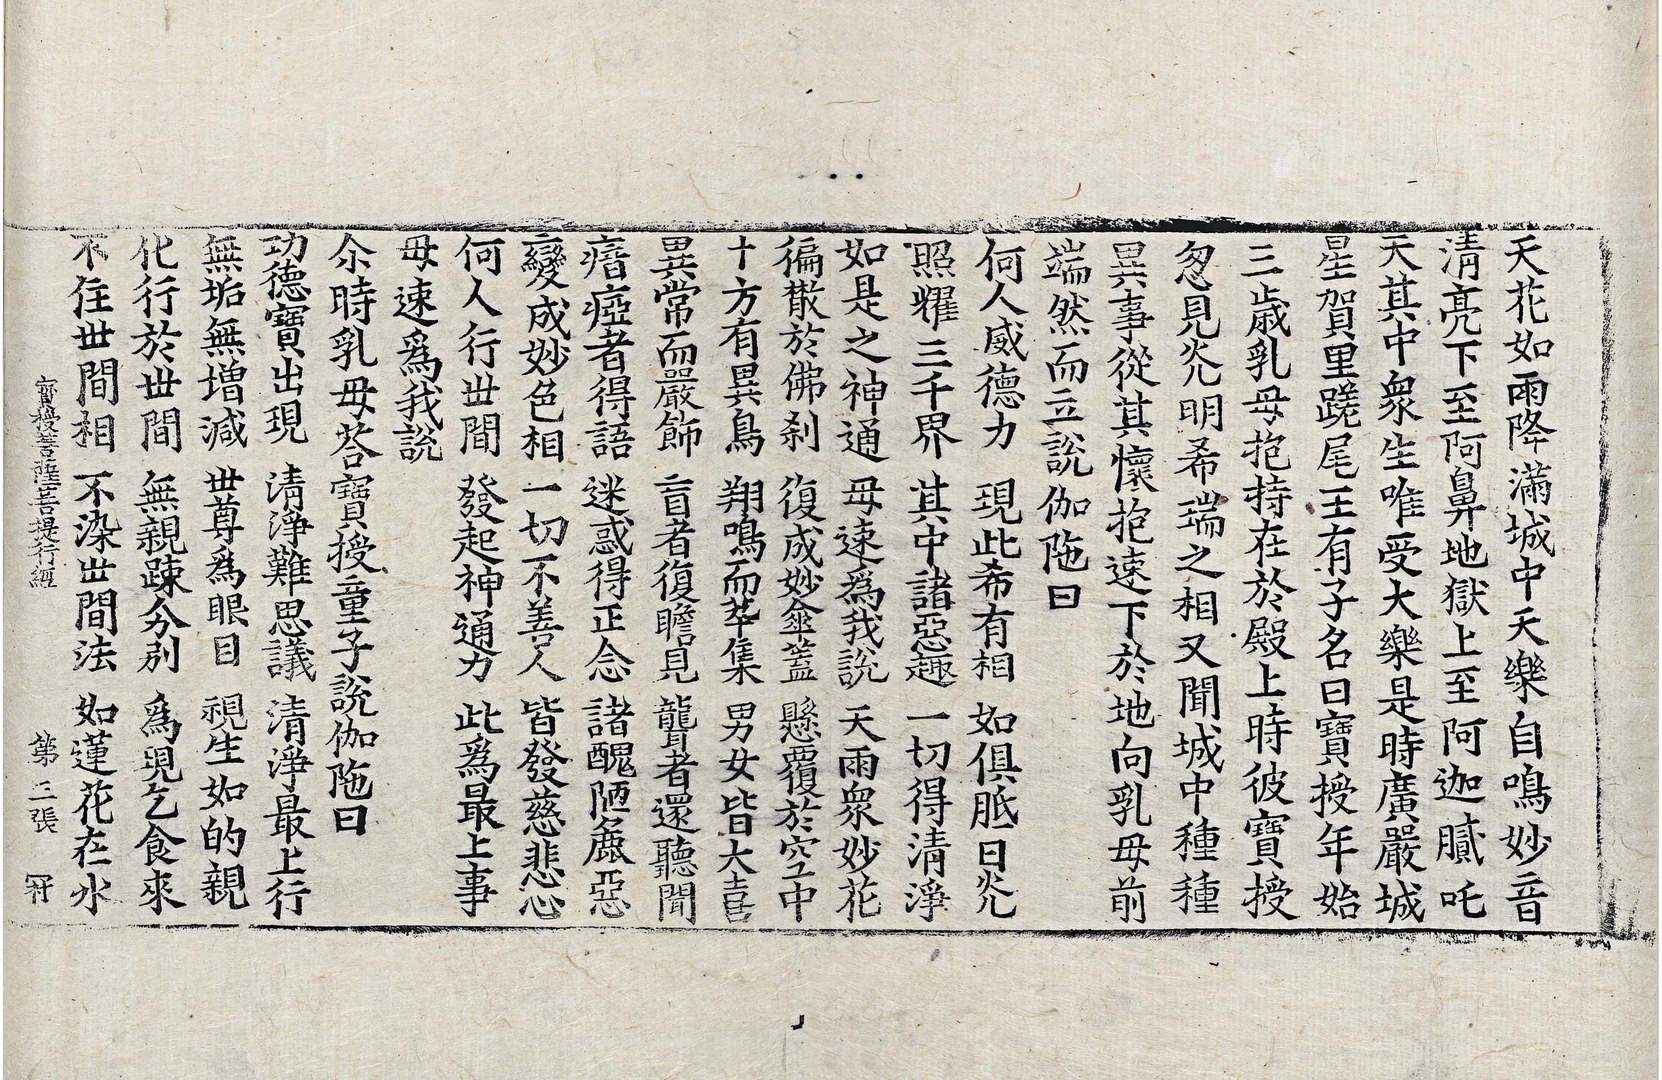 天花如雨降滿城中天樂自鳴妙音
清亮下至阿鼻地獄上至阿迦膩吒
天其中衆生唯受大樂是時廣嚴城
星賀里蹉尾王有子名曰寶授年始
三歲乳母抱持在於殿上時彼寶授
忽見光明希瑞之相又聞城中種種
異事從其懷抱速下於地向乳母前
端然而立說伽陁曰
何人威德力　現此希有相　如俱胝日光
照耀三千界　其中諸惡趣　一切得清淨
如是之神通　母速爲我說　天雨衆妙花
徧散於佛刹　復成妙傘蓋　懸覆於空中
十方有異鳥　翔鳴而萃集　男女皆大喜
異常而嚴飾　盲者復瞻見　聾者還聽聞
瘖瘂者得語　迷惑得正念　諸醜陋麁惡
變成妙色相　一切不善人　皆發慈悲心
何人行丗間　發起神通力　此爲最上事
母速爲我說
尒時乳母荅寶授童子說伽陁曰
功德寶出現　清淨難思議　清淨最上行
無垢無增減　丗尊爲眼目　視生如的親
化行於丗間　無親踈分別　爲現乞食來
不住丗間相　不染丗間法　如蓮花在水
寶授菩薩菩提行經　第三張